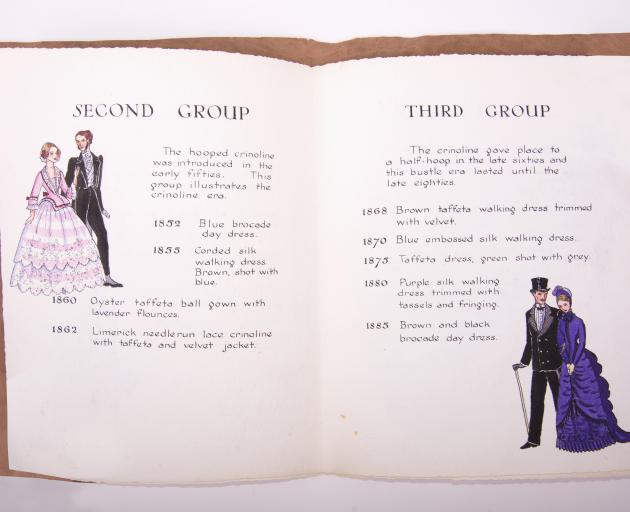 SECOND GROUP
The hooped crinoline
was introduced in the
early fifties. This
group illustrates the
crinoline era.
1852 Blue brocade
day dress.
1855 Corded silk
walking dress.
Brown, shot with
blue.
1860 Oyster taffeta ball gown with
lavender flounces.
1862 Limerick needlerun lace crinoline
with taffeta and velvet jacket.
THIRD GROUP
The crinoline gave place to
a half-hoop in the late sixties and
this bustle era lasted until the
late eighties.
1868 Brown taffeta walking dress trimmed
with velvet.
1870 Blue embossed silk walking dress.
1875 Taffeta dress, green shot with grey.
1880 Purple silk walking
dress trimmed with
tassels and fringing.
1885 Brown and black
brocade day dress.